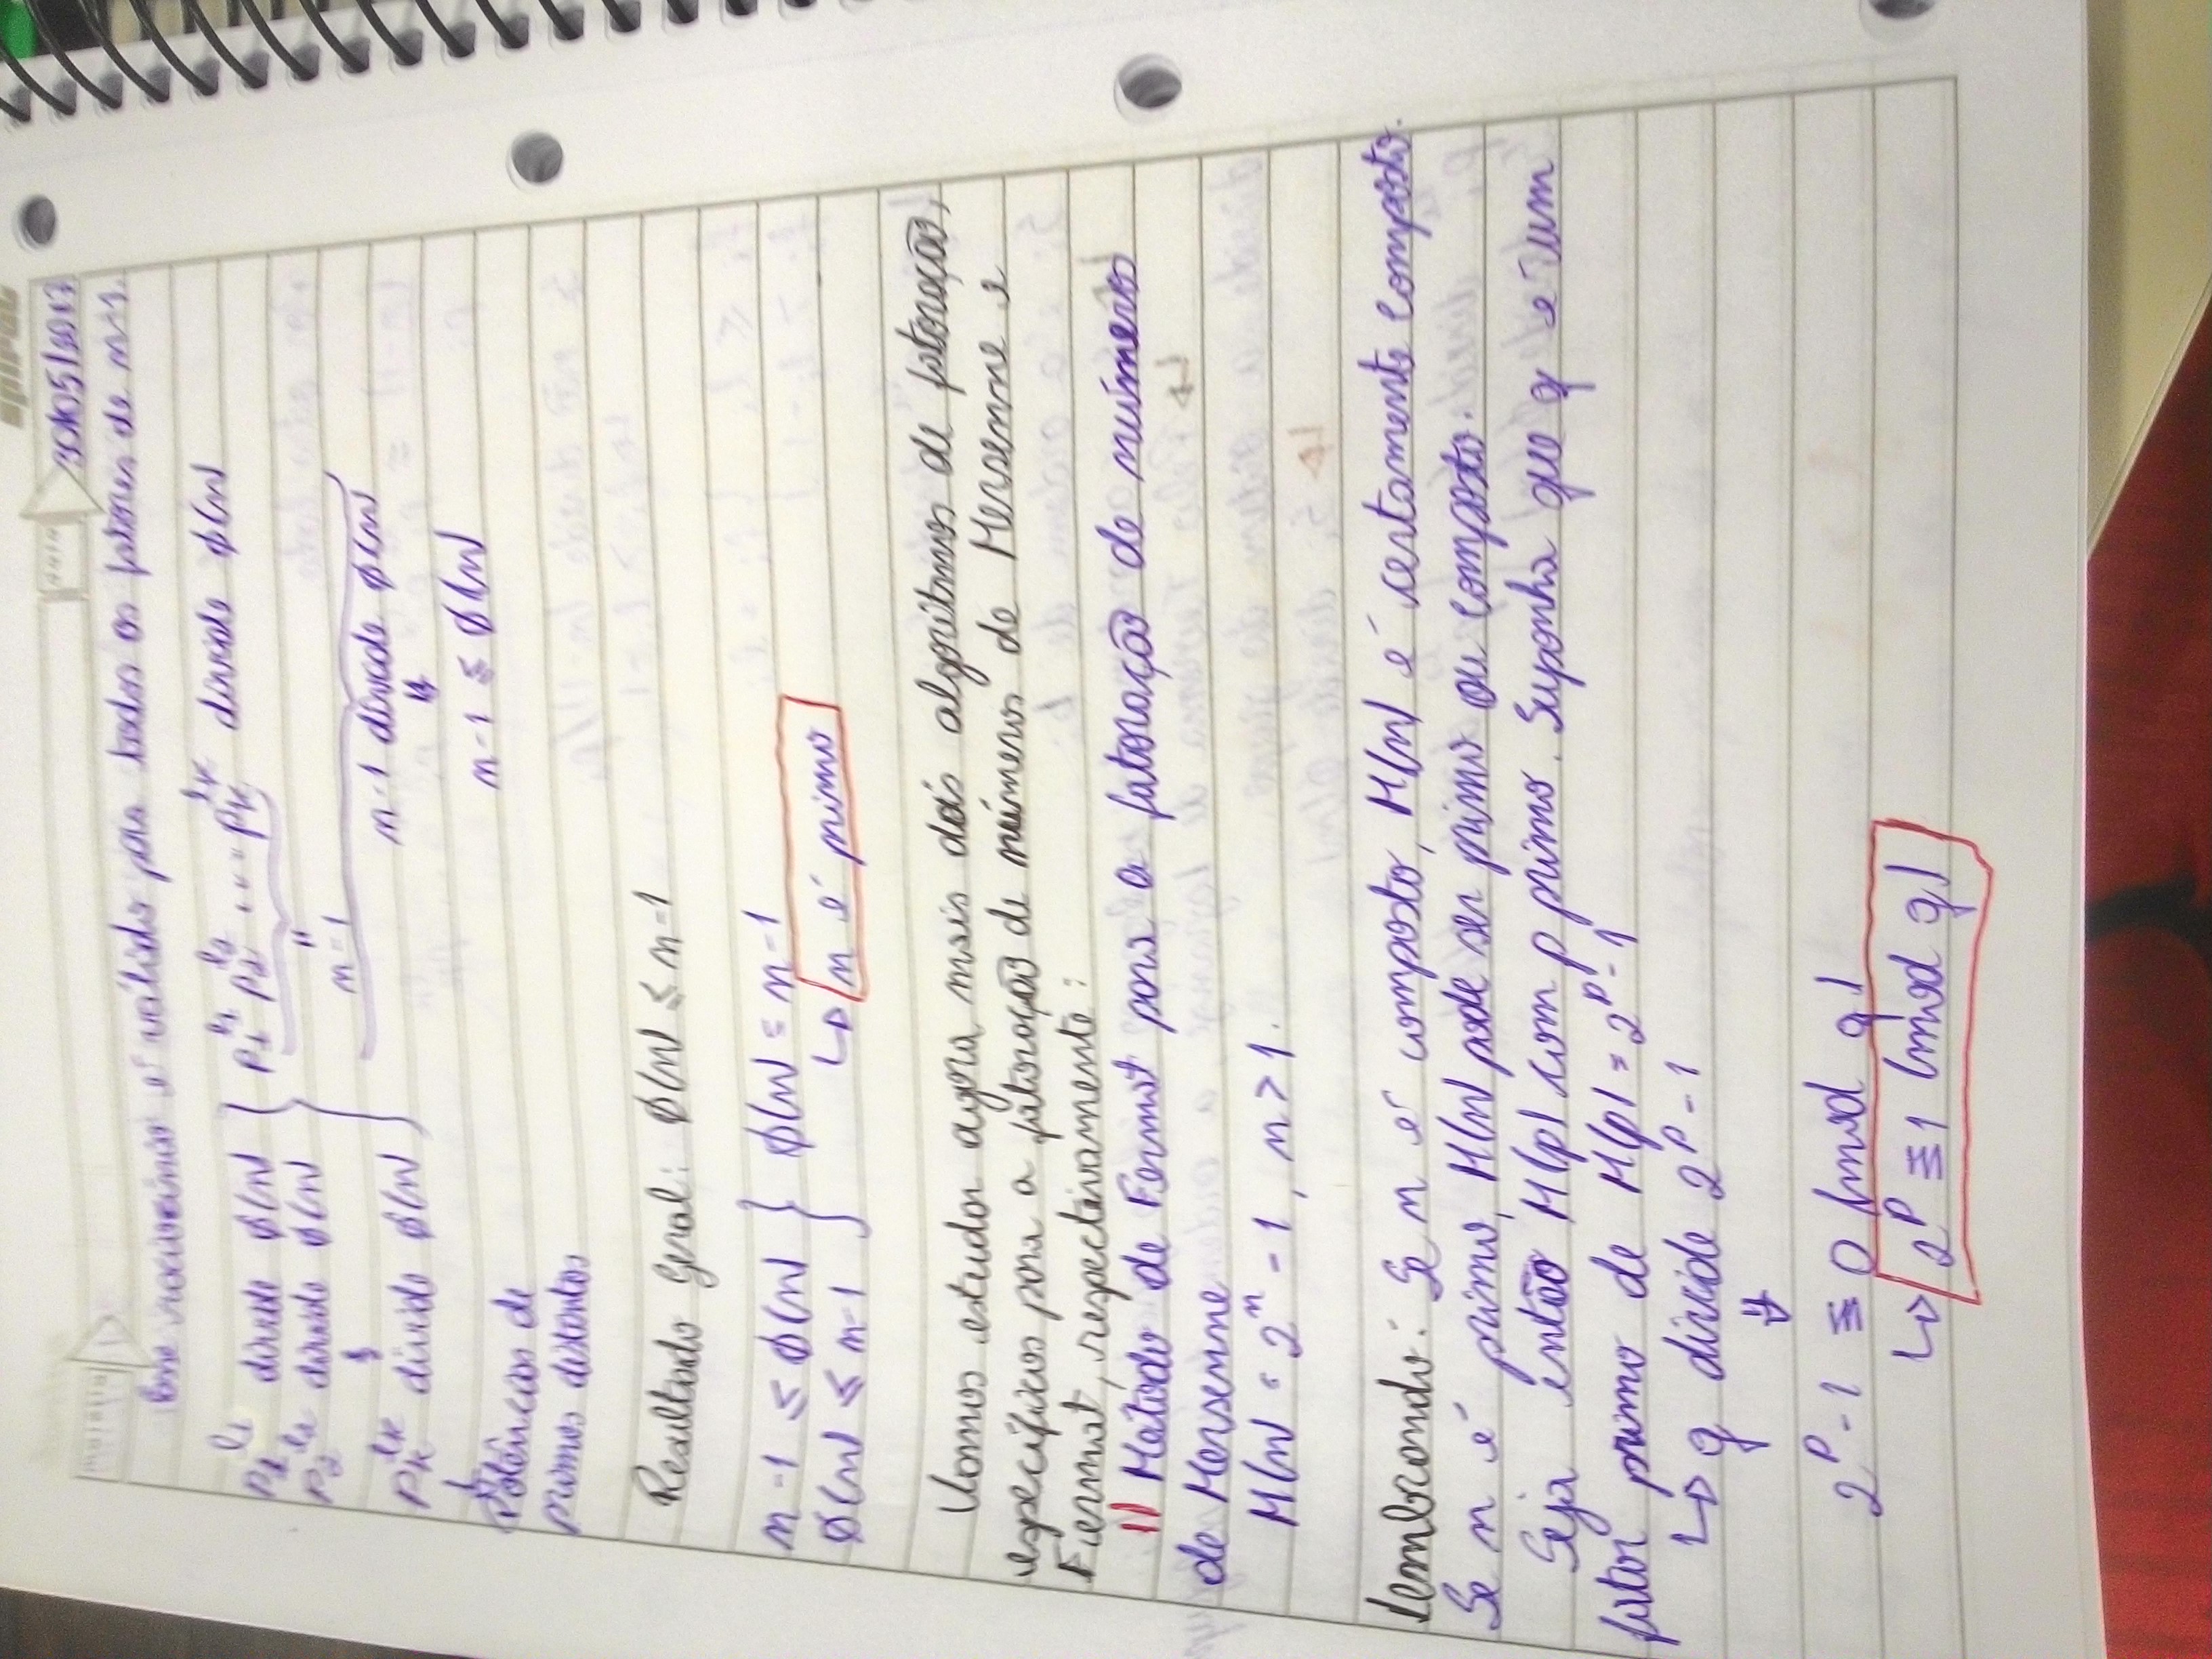 30/05/2017
Esse raciocínio é válido para todos os fatores de n-1.
p₁^l₁ divide φ(n) } p₁^l₁ p₂^l₂ ... p_k^l_k divide φ(n)
p₂^l₂ divide φ(n)
n-1
p_k^l_k divide φ(n)
n-1 divide φ(n)
⇓
n-1 ≤ φ(n)
Potências de
primos distintos
Resultado Geral: φ(n) ≤ n-1
n-1 ≤ φ(n) } φ(n) = n-1
φ(n) ≤ n-1 ↳ n é primo
Vamos estudar agora mais dois algoritmos de fatoração,
específicos para a fatoração de números de Mersenne e
Fermat, respectivamente:
1) Método de Fermat para a fatoração de números
de Mersenne
M(n) = 2^n - 1, n > 1.
Lembrando: Se n é composto, M(n) é certamente composto.
Se n é primo, M(n) pode ser primo ou composto.
Seja então M(p) com p primo. Suponha que q é um
fator primo de M(p) = 2^p - 1
↳ q divide 2^p - 1
⇓
2^p - 1 ≡ 0 (mod q)
↳ 2^p ≡ 1 (mod q)